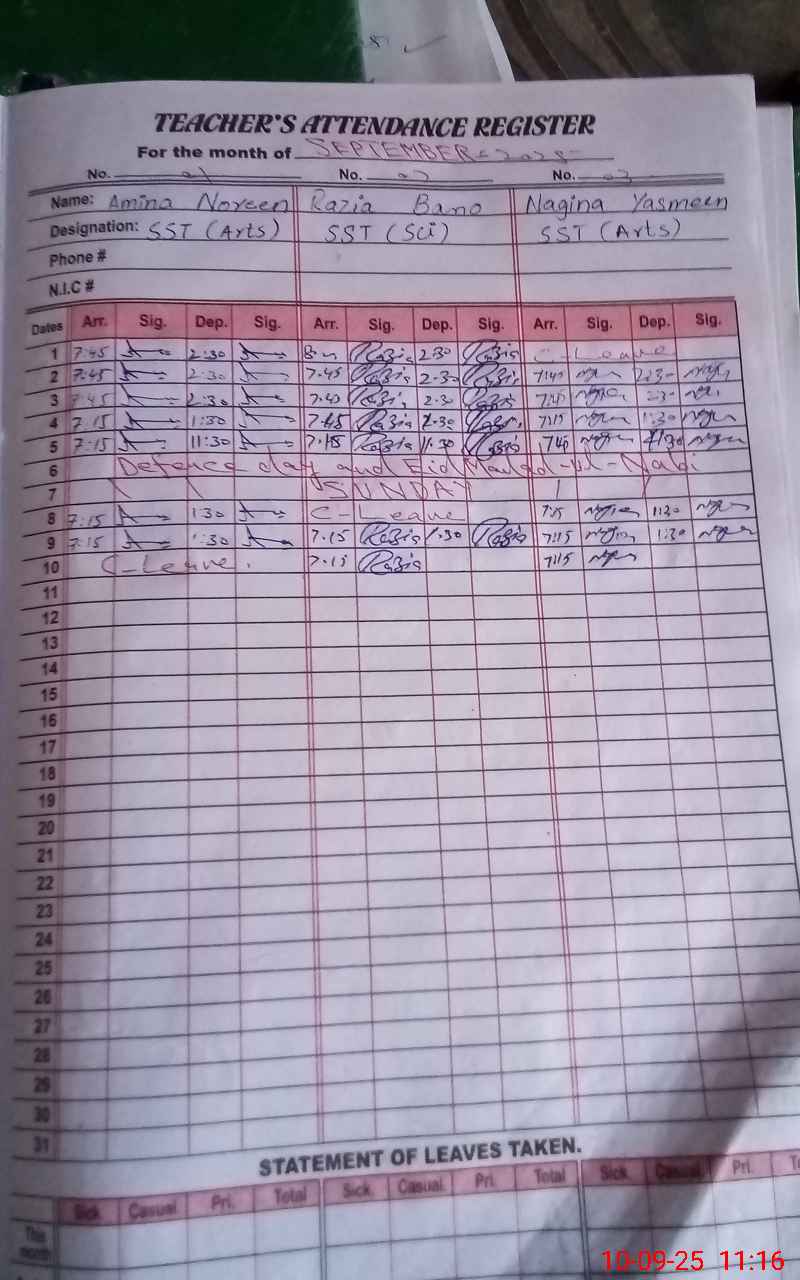 TEACHER'S ATTENDANCE REGISTER
For the month of SEPTEMBER=2025
No. 01 No. 02 No. 03
Name: Amina Noreen Razia Bano Nagina Yasmeen
Designation: SST (Arts) SST (Sci) SST (Arts)
Phone #
N.I.C #
Dates Arr. Sig. Dep. Sig. Arr. Sig. Dep. Sig. Arr. Sig. Dep. Sig.
1 7:45 2:30 Razia 2.30 Razia C-Leave
2 7:45 2:30 7.45 Razia 2.30 Razia 7:40 2:30
3 7:45 2:30 7.45 Razia 2.30 Razia 2:30
4 7:15 1:30 7.45 Razia 1.30 Razia 7:15 1:30
5 7:15 11:30 7.15 Razia 11.30 Razia 7:40 11:30
6 Defence day and Eid Malad-ul-Nabi
7 SUNDAY
8 7:15 1:30 C-Leave 7:15 1:30
9 7:15 1:30 7.15 Razia 1.30 Razia 7:15 1:30
10 C-Leave. 7.15 Razia 7:15
11
12
13
14
15
16
17
18
19
20
21
22
23
24
25
26
27
28
29
30
31
STATEMENT OF LEAVES TAKEN.
Sick Casual Pri. Total Sick Casual Pri. Total Sick Casual Pri.
This month
10-09-25 11:16